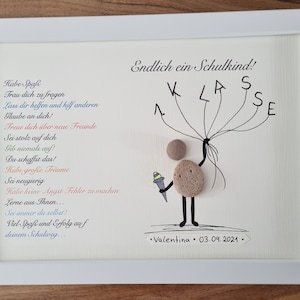 Endlich ein Schulkind!
1. KLASSE
Habe Spaß!
Trau dich zu fragen
Lass dir helfen und hilf anderen
Glaube an dich!
Freue dich über neue Freunde
Sei stolz auf dich
Gib niemals auf!
Du schaffst das!
Habe große Träume
Sei neugierig
Habe keine Angst Fehler zu machen
Lerne aus Ihnen...
Sei immer du selbst!
Viel Spaß und Erfolg auf
deinem Schulweg...
• Valentina • 03.09.2021 •